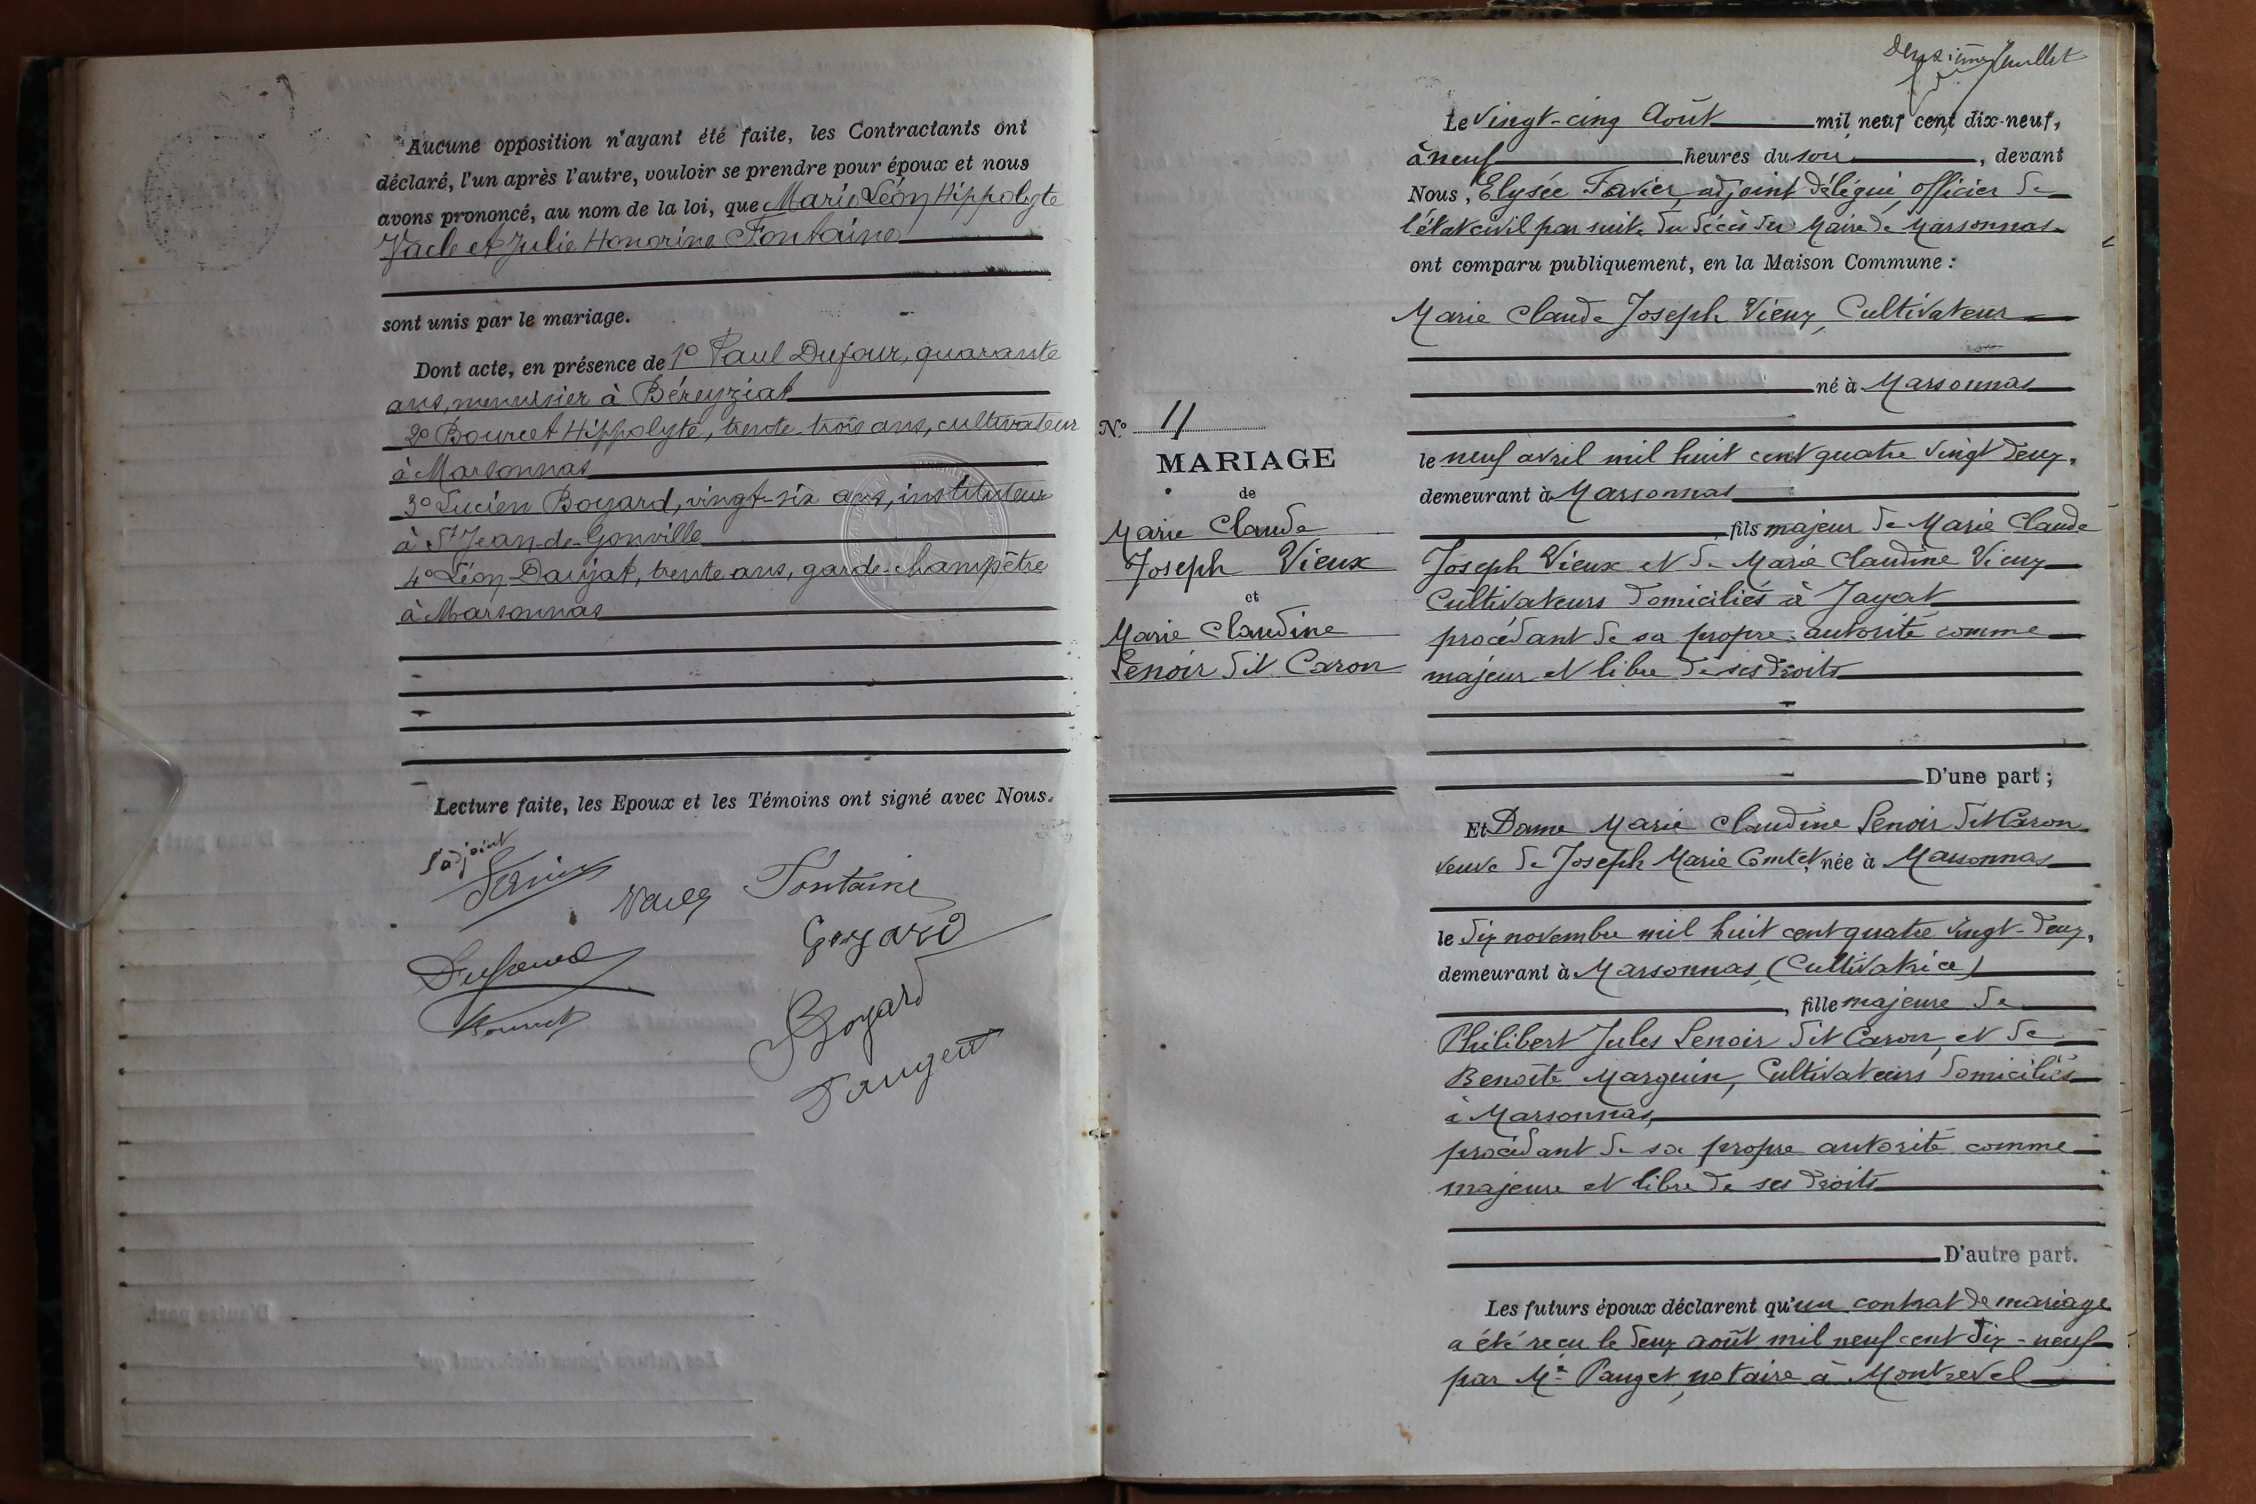 Aucune opposition n'ayant été faite, les Contractants ont
déclaré, l'un après l'autre, vouloir se prendre pour époux et nous
avons prononcé, au nom de la loi, que Marie Léon Hippolyte
Vacle et Julie Honorine Fontaine
sont unis par le mariage.
Dont acte, en présence de 1º Paul Dufour, quarante
ans, menuisier à Béreyziat
2º Bourcet Hippolyte, trente trois ans, cultivateur
à Marsonnas
3º Lucien Boyard, vingt-six ans, instituteur
à St Jean-de-Gonville
4º Léon Daujat, trente ans, garde-champêtre
à Marsonnas
Lecture faite, les Epoux et les Témoins ont signé avec Nous.
L'adjoint
Fontaine
Boyard
Deuxième feuillet
Le vingt-cinq Août mil neuf cent dix-neuf,
à neuf heures du soir, devant
Nous, Elysée Favier, adjoint délégué, officier de
l'état civil par suite du décès du Maire de Marsonnas
ont comparu publiquement, en la Maison Commune :
Marie Claude Joseph Vieux, Cultivateur
né à Marsonnas
le neuf avril mil huit cent quatre vingt deux,
demeurant à Marsonnas
, fils majeur de Marie Claude
Joseph Vieux et de Marie Claudine Vieux
Cultivateurs domiciliés à Jayat
procédant de sa propre autorité comme
majeur et libre de ses droits
D'une part ;
Nº 11
MARIAGE
de
Marie Claude
Joseph Vieux
et
Marie Claudine
Lenoir dit Caron
Et Dame Marie Claudine Lenoir dit Caron
veuve de Joseph Marie Comtet, née à Marsonnas
le dix novembre mil huit cent quatre vingt-deux,
demeurant à Marsonnas, (Cultivatrice)
, fille majeure de
Philibert Jules Lenoir dit Caron, et de
Benoîte Marguin, Cultivateurs domiciliés
à Marsonnas,
procédant de sa propre autorité comme
majeure et libre de ses droits
D'autre part.
Les futurs époux déclarent qu'un contrat de mariage
a été reçu le deux août mil neuf cent dix-neuf
par Me Pauget, notaire à Montrevel